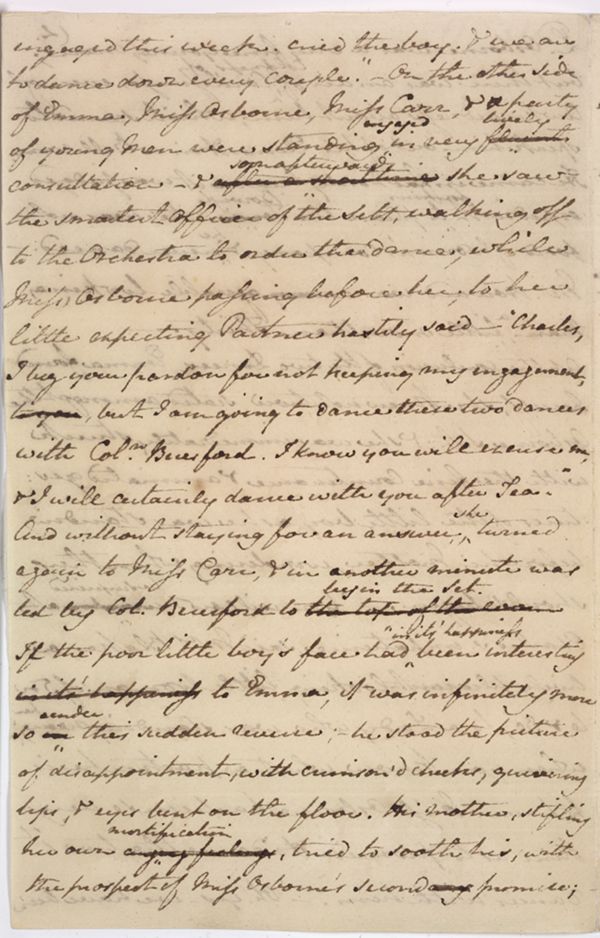 engaged this week. cried the boy. & we are
to dance down every couple." — On the other side
of Emma, Miss Osborne, Miss Carr, & a party
of young Men were standing engaged in very fluent lively
consultation — & after a short time soon afterwards she saw
the smartest Officer of the Sett, walking off
to the Orchestra to order the dance, while
Miss Osborne passing before her, to her
little expecting Partner hastily said — "Charles,
I beg your pardon for not keeping my engagement,
to you, but I am going to dance these two dances
with Col. Beresford. I know you will excuse me,
& I will certainly dance with you after Tea."
And without staying for an answer, she turned
again to Miss Carr, & in another minute was
led by Col. Beresford to the top of the room begin the Set.
If the poor little boy's face had in its' happiness been interesting
in its' happiness to Emma, it was infinitely more
so in under this sudden reverse; — he stood the picture
of disappointment, with crimson'd cheeks, quivering
lips, & eyes bent on the floor. His mother, stifling
her own angry feelings mortification, tried to sooth his, with
the prospect of Miss Osborne's second promise; —